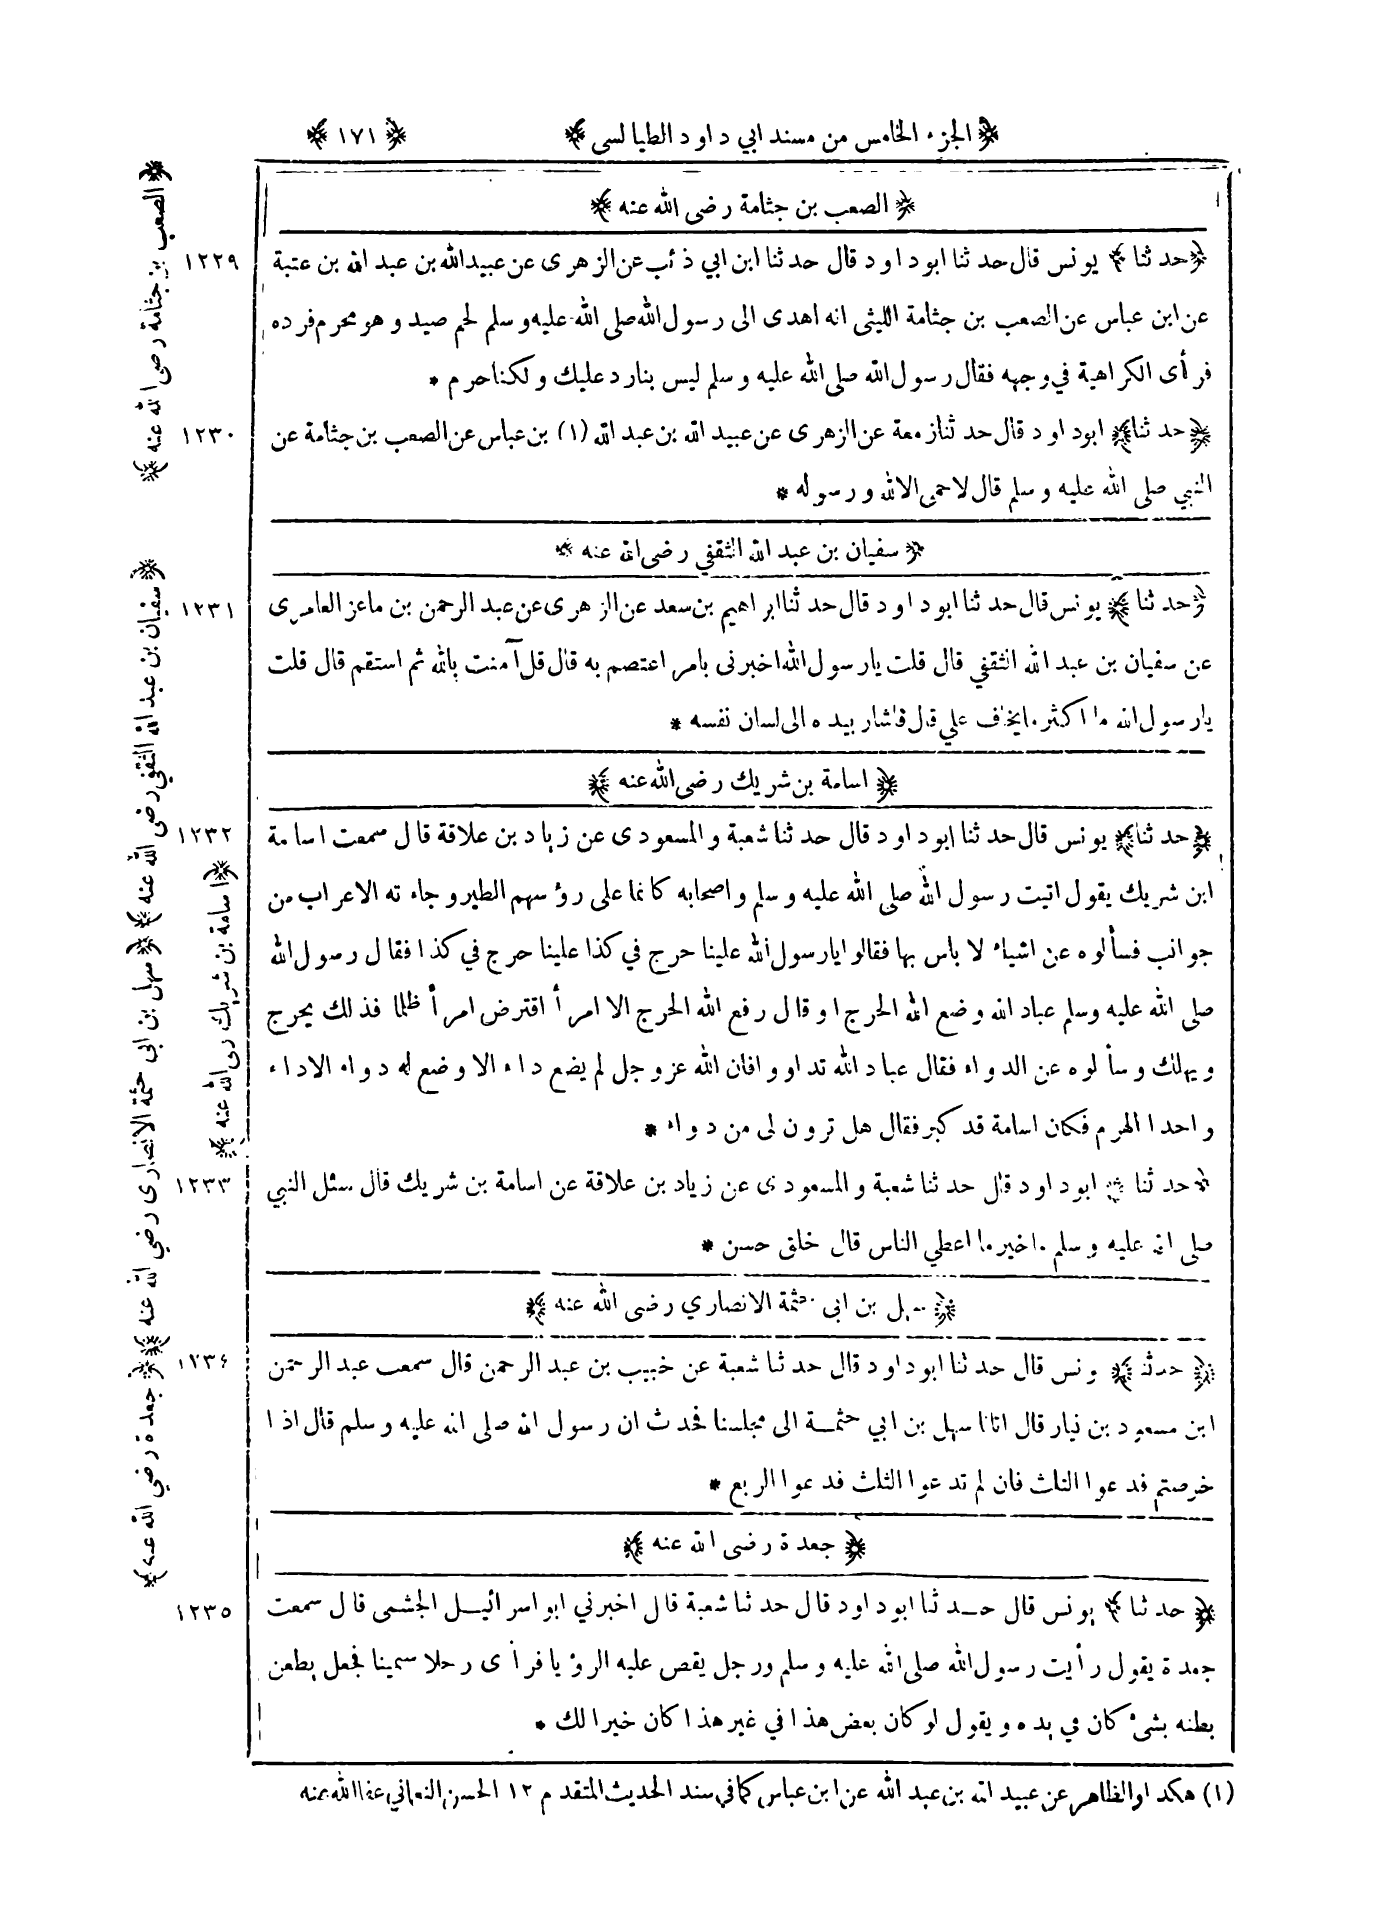 ﴿ الجزء الخامس من مسند ابي داود الطيالسى ﴾ ﴿ ١٧١ ﴾
﴿ الصعب بن جثامة رضى الله عنه ﴾
١٢٢٩ ﴿حدثنا﴾ يونس قال حدثنا ابو داود قال حدثنا ابن ابي ذئب عن الزهرى عن عبيد الله بن عبد الله بن عتبة
عن ابن عباس عن الصعب بن جثامة الليثى انه اهدى الى رسول الله صلى الله عليه وسلم لحم صيد و هو محرم فرده
فرأى الكراهية في وجهه فقال رسول الله صلى الله عليه وسلم ليس بنارد عليك ولكنا حرم *
١٢٣٠ ﴿حدثنا﴾ ابو داود قال حدثنا زمعة عن الزهرى عن عبيد الله بن عبد الله (١) بن عباس عن الصعب بن جثامة عن
النبي صلى الله عليه وسلم قال لا حمى الا لله ورسوله *
﴿ سفيان بن عبد الله الثقفي رضى الله عنه ﴾
١٢٣١ ﴿حدثنا﴾ يونس قال حدثنا ابو داود قال حدثنا ابراهيم بن سعد عن الزهرى عن عبد الرحمن بن ماعز العامرى
عن سفيان بن عبد الله الثقفي قال قلت يارسول الله اخبرنى بامر اعتصم به قال قل آمنت بالله ثم استقم قال قلت
يارسول الله ما اكثر مايخاف علي قال فاشار بيده الى لسان نفسه *
﴿ اسامة بن شريك رضى الله عنه ﴾
١٢٣٢ ﴿حدثنا﴾ يونس قال حدثنا ابو داود قال حدثنا شعبة والمسعودى عن زياد بن علاقة قال سمعت اسامة
ابن شريك يقول اتيت رسول الله صلى الله عليه وسلم واصحابه كانما على رؤسهم الطير وجاءته الاعراب من
جوانب فسألوه عن اشياء لا باس بها فقالوا يارسول الله علينا حرج في كذا علينا حرج في كذا فقال رسول الله
صلى الله عليه وسلم عباد الله وضع الله الحرج او قال رفع الله الحرج الا امرأ اقترض امرأ ظلما فذلك يحرج
ويهلك وسألوه عن الدواء فقال عباد الله تداووا فان الله عزوجل لم يضع داء الا وضع له دواء الا داء
واحدا الهرم فكان اسامة قد كبر فقال هل ترون لى من دواء *
١٢٣٣ ﴿حدثنا﴾ ابو داود قال حدثنا شعبة والمسعودى عن زياد بن علاقة عن اسامة بن شريك قال سئل النبي
صلى الله عليه وسلم ماخير ما اعطي الناس قال خلق حسن *
﴿ سهل بن ابى حثمة الانصاري رضى الله عنه ﴾
١٢٣٤ ﴿حدثنا﴾ يونس قال حدثنا ابو داود قال حدثنا شعبة عن خبيب بن عبد الرحمن قال سمعت عبد الرحمن
ابن مسعود بن نيار قال اتانا سهل بن ابي حثمة الى مجلسنا فحدث ان رسول الله صلى الله عليه وسلم قال اذا
خرصتم فدعوا الثلث فان لم تدعوا الثلث فدعوا الربع *
﴿ جعدة رضى الله عنه ﴾
١٢٣٥ ﴿حدثنا﴾ يونس قال حدثنا ابو داود قال حدثنا شعبة قال اخبرني ابو اسرائيل الجشمى قال سمعت
جعدة يقول رأيت رسول الله صلى الله عليه وسلم ورجل يقص عليه الرؤيا فرأى رجلا سمينا فجعل يطعن
بطنه بشىء كان في يده ويقول لو كان بعض هذا في غير هذا كان خيرا لك *
(١) هكذا والظاهر عن عبيد الله بن عبد الله عن ابن عباس كما في سند الحديث المتقدم ١٢ الحسن النعماني عفا الله عنه
﴿الصعب بن جثامة رضى الله عنه﴾
﴿سفيان بن عبد الله الثقفي رضى الله عنه﴾
﴿اسامة بن شريك رضى الله عنه﴾
﴿سهل بن ابى حثمة الانصارى رضي الله عنه﴾
﴿جعدة رضي الله عنه﴾